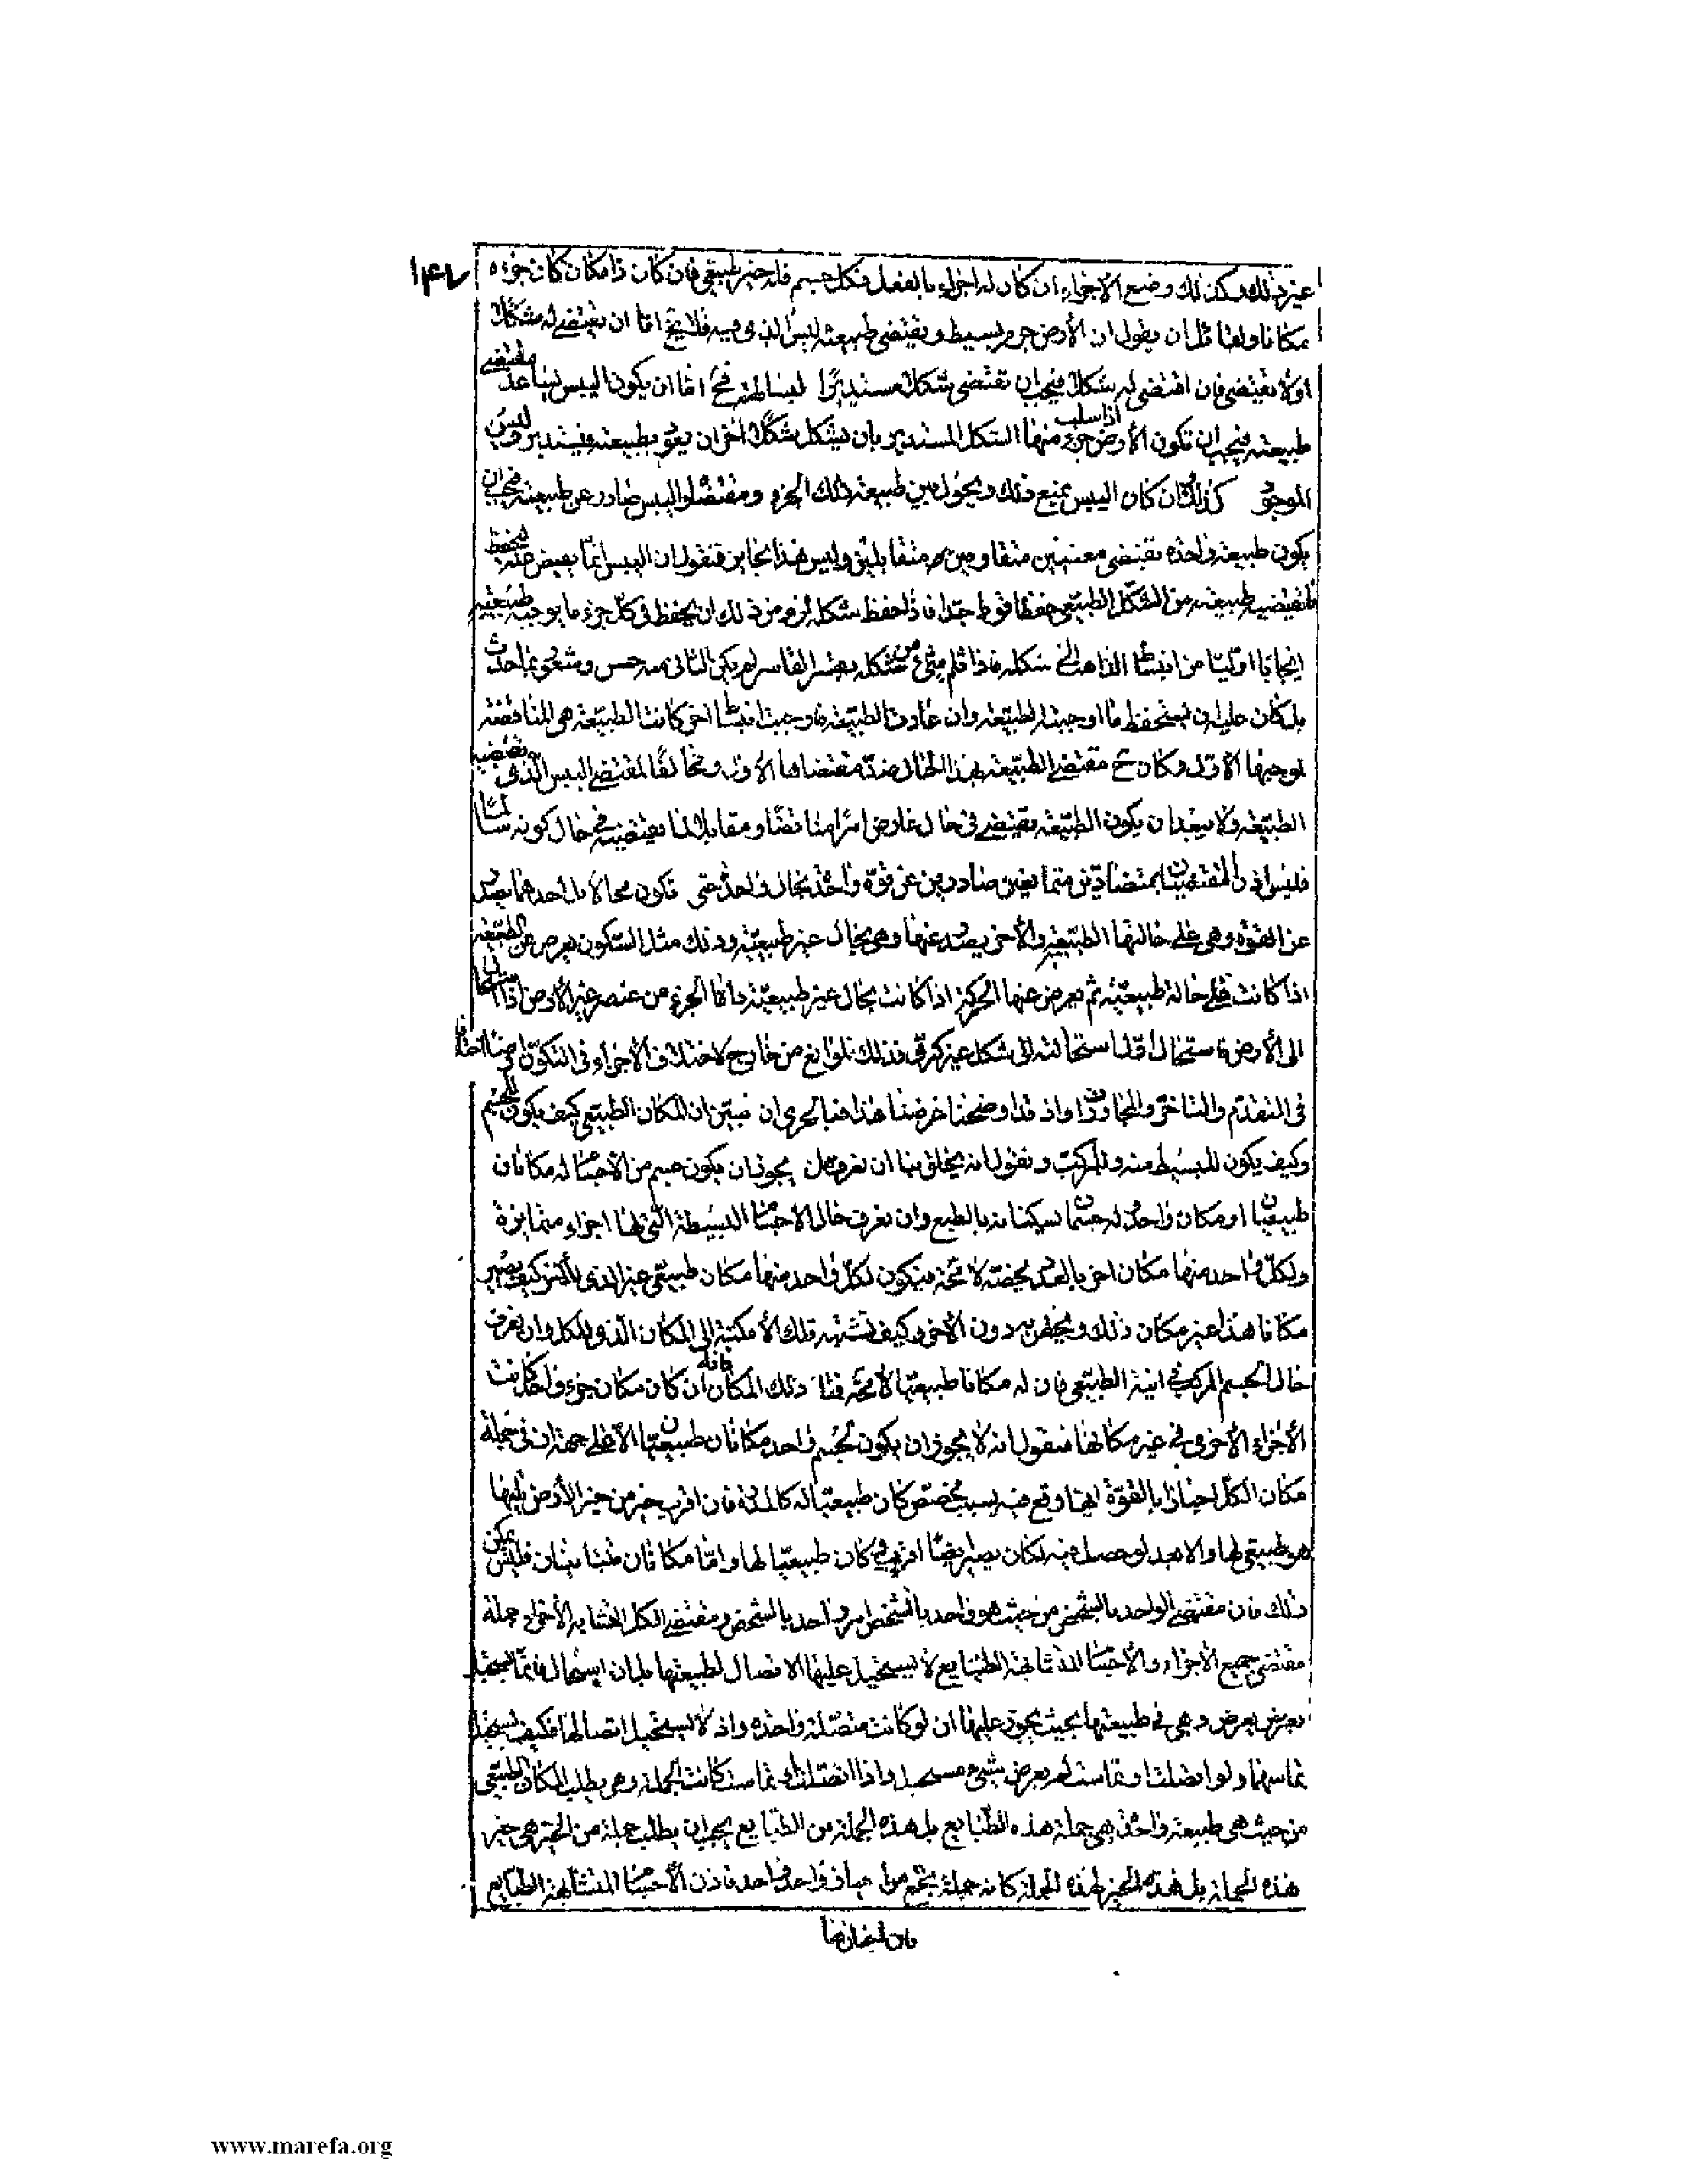 ١٤٧
غير ذلك وكذلك وضع الأجزاء ان كان له اجزاء بالفعل فكل جسم فله حيز طبيعي فان كان ذا مكان كان حيزه
مكانا ولقائل ان يقول ان الأرض جرم بسيط ويقتضى طبيعته اليبس الذى فيه فلا يخ اما ان يقتضى له شكلا
اولا يقتضى فان اقتضى له شكلا فيجب ان يقتضى شكلا مستديرًا لبساطته فح اما ان يكون اليبس يساعد مقتضى
طبيعته فيجب ان تكون الأرض جزء منها اذا سلب الشكل المستدير بان يشكل بشكل اخر ان يعود بطبيعته فيستدير وليس
الموجود كذلك وان كان اليبس يمنع ذلك ويحول بين طبيعته ذلك الجزء ومقتضاها واليبس صادر عن طبيعته فيجب ان
يكون طبيعة واحدة تقتضى معنيين متقاومين متقابلين وليس هذا بجايز فنقول ان اليبس انما يفيض عنه ليحفظ
ما تقتضيه طبيعته من الشكل الطبيعي حفظا قويا جدا فاذا حفظ شكله لزم من ذلك ان يحفظ فى كل جزء ما يوجبه طبيعته
ايجابا اوليا من انبساط الذاهب الى شكله فاذا ثلم شئ من شكله بقسر القاسر لم يكن للثانى معه حس وشعور بما حدث
بل كان عليه ان يستحفظ ما اوجبته الطبيعة وان عادت الطبيعة فاوجبت انبساطا اخر كانت الطبيعة هى المناقضة
لموجبها الأول وكان ح مقتضى الطبيعة بهذا الحال ضد مقتضاها الأول ومخالفا لمقتضى اليبس الذى تقتضيه
الطبيعة ولا يبعد ان يكون الطبيعة يقتضى فى حال عارض امرا مناقضا ومقابلا لما يقتضيه فى حال كونه سالما
فليس اذن المقتضيان بمتضادين متمانعين صادرين عن قوة واحدة بحال واحدة حتى تكون محالا بل احدهما يصدر
عن القوة وهى على حالتها الطبيعية والأخرى يصدر عنها وهى بحال غير طبيعية وذلك مثل السكون يعرض عن الطبيعة
اذا كانت على حالة طبيعية ثم يعرض عنها الحركة اذا كانت بحال غير طبيعية واما الجزء من عنصر غير الأرض اذا استحال
الى الأرض فاستحال اقلا استحالته الى شكل غير كرى فذلك لموانع من خارج لاختلاف الأجزاء فى التكون ايضا اختلافا
فى التقدم والتاخر والمجاورة واذ قد اوضحنا غرضنا هذا فبالحرى ان نبين ان المكان الطبيعي كيف يكون للجسم
وكيف يكون للبسيط منه وللمركب ونقول انه يخلق بنا ان نعرف هل يجوز ان يكون جسم من الأجسام له مكانان
طبيعيان او مكان واحد له جسمان يسكنانه بالطبع وان نعرف حال الاجسام البسيطة التى لها اجزاء متمايزة
ولكل واحد منها مكان اخر بالعدد يخصه لا محة فيكون لكل واحد منها مكان طبيعي غير الذى للآخر كيف يصير
مكانا هذا غير مكان ذلك ويختص به دون الآخر وكيف تشتهه تلك الأمكنة الى المكان الذى للكل وان نعرف
حال الجسم المركب فى اينه الطبيعي فان له مكانا طبيعيا لا محة فما ذلك المكان فانه ان كان مكان جزء واحد كانت
الأجزاء الأخرى فى غير مكانها فنقول انه لا يجوز ان يكون لجسم واحد مكانان طبيعيان الا على جهة ان فى جملة
مكان الكل احيازا بالقوة ايها وقع فيه بسبب مخصص كان طبيعيا له كالمدرة فان اقرب حيز من حيز الأرض يليها
هو طبيعي لها والابعد لو حصل فيه لكان يصير ايضا اقرب وكان طبيعيا لها واما مكانان متباينان فليس يمكن
ذلك فان مقتضى الواحد بالشخص من حيث هو واحد بالشخص امر واحد بالشخص ومقتضى الكل المتشابه الأجزاء جملة
مقتضى جميع الأجزاء والأجسام المتشابهة الطبايع لا يستحيل عليها الاتصال لطبيعتها بل ان استحال فانما يستحيل
بعرض يعرض وهى فى طبيعتها بحيث يجوز عليها ان لو كانت متصلة واحدة واذ لا يستحيل اتصالها فكيف يستحيل
تماسها ولو اتصلت او تماست لم يعرض شئ مستحيل واذا اتصلت او تماست كانت الجملة وهى يطلب المكان الطبيعي
من حيث هى طبيعة واحدة هى جملة هذه الطبايع بل هذه الجملة من الطبايع يجب ان يطلب جملة من الحيز هى حيز
هذه الجملة بل هذه الحيز لهذه الجملة كانه جملة يجتمع من احياز واحد واحد فاذن الأجسام المتشابهة الطبايع
فان احيازها
www.marefa.org